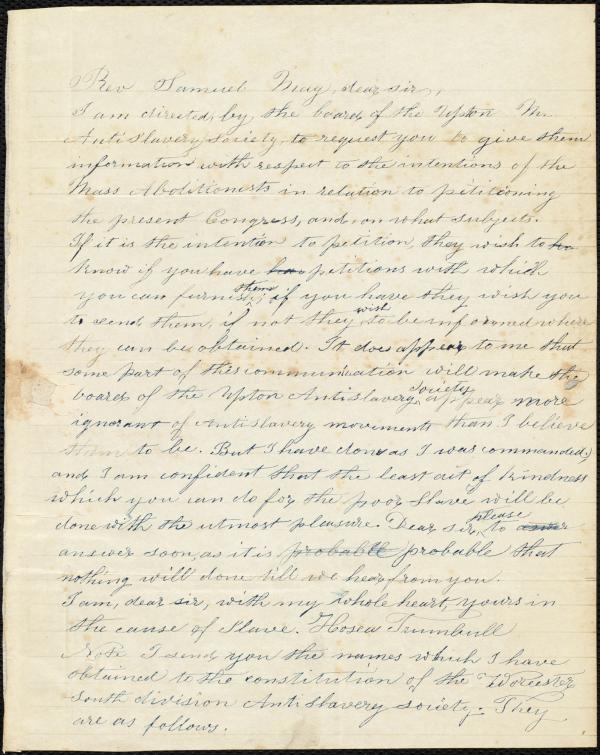 Rev Samuel May, dear sir,
I am directed, by, the board of the Upton
Anti Slavery Society, to request you to give them
information with respect to the intentions of the
Mass Abolitionests in relation to pititioning
the present Congress, and, on what subjects.
If it is the intention to petition, they wish to
know if you have petitions with which
you can furnish them; if you have they wish you
to send them, if not they wish to be informed where
they can be obtained. It does appear to me that
some part of this communication will make the
board of the Upton Antislavery Society appear more
ignorant of Antislavery movements than I believe
them to be. But I have done as I was commanded;
and I am confident that the least act of kindness
which you can do for the poor Slave will be
done with the utmost pleasure. Dear sir, please to
answer soon, as it is probable probable that
nothing will done till we hear from you.
I am, dear sir, with my whole heart, yours in
the cause of Slave. Hosea Trumbull
I send you the names which I have
obtained to the constitution of the Worcester
South division Anti Slavery society. They
are as follows.